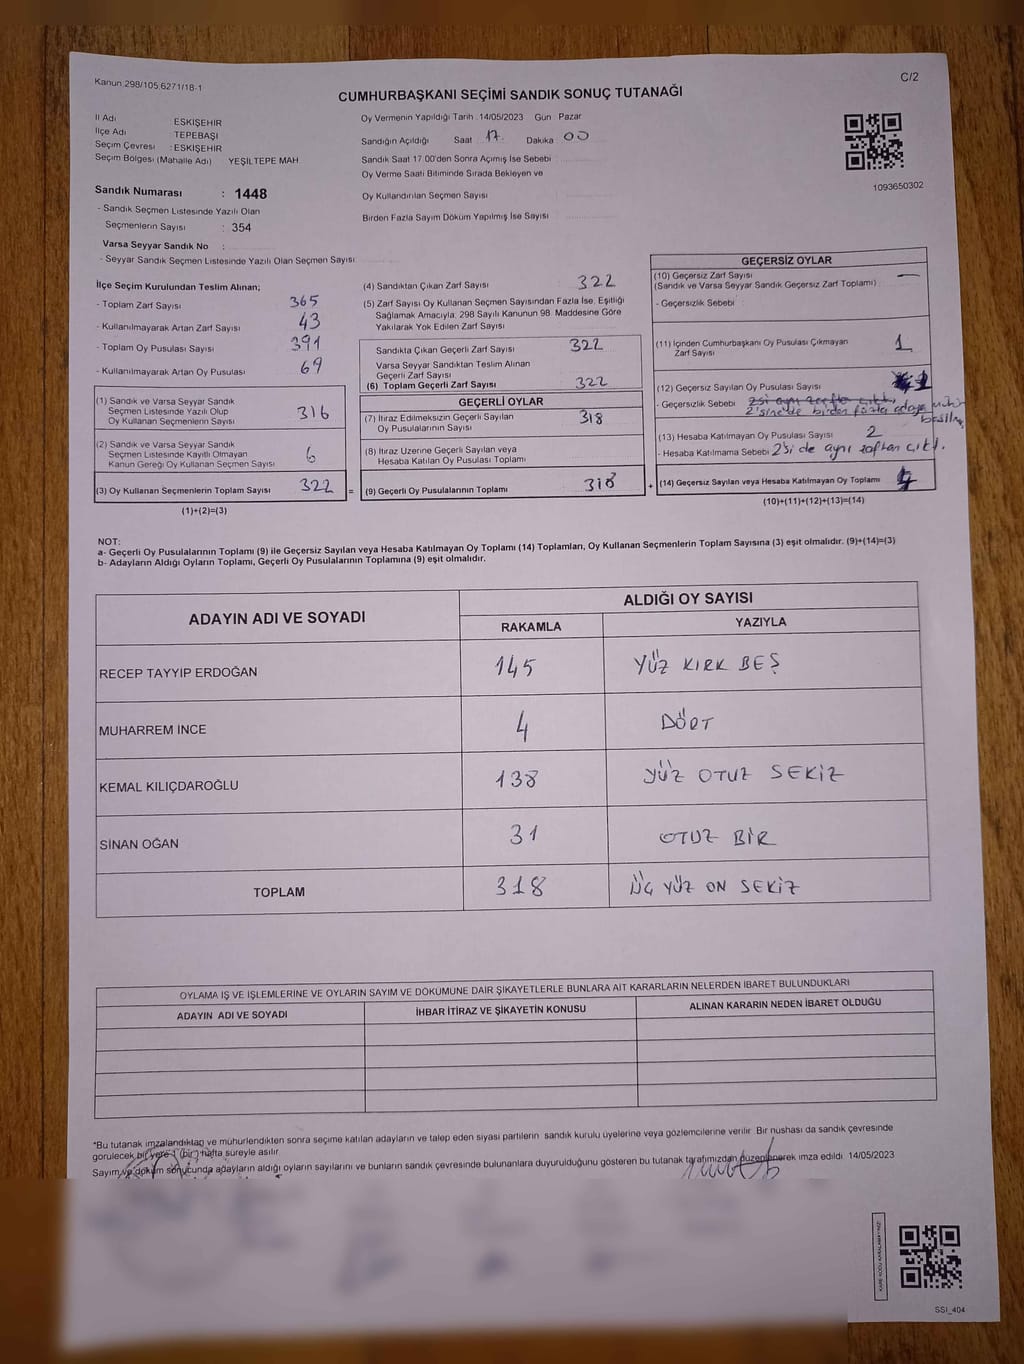 Kanun 298/105,6271/18-1
C/2
CUMHURBAŞKANI SEÇİMİ SANDIK SONUÇ TUTANAĞI
İl Adı ESKİŞEHİR
İlçe Adı TEPEBAŞI
Seçim Çevresi : ESKİŞEHİR
Seçim Bölgesi (Mahalle Adı) YEŞİLTEPE MAH
Sandık Numarası : 1448
- Sandık Seçmen Listesinde Yazılı Olan
Seçmenlerin Sayısı : 354
Varsa Seyyar Sandık No :
- Seyyar Sandık Seçmen Listesinde Yazılı Olan Seçmen Sayısı
Oy Vermenin Yapıldığı Tarih 14/05/2023 Gün Pazar
Sandığın Açıldığı Saat 17 Dakika 00
Sandık Saat 17.00'den Sonra Açımış İse Sebebi
Oy Verme Saati Bitiminde Sırada Bekleyen ve
Oy Kullandırılan Seçmen Sayısı
Birden Fazla Sayım Döküm Yapılmış İse Sayısı
1093650302
İlçe Seçim Kurulundan Teslim Alınan;
- Toplam Zarf Sayısı 365
- Kullanılmayarak Artan Zarf Sayısı 43
- Toplam Oy Pusulası Sayısı 391
- Kullanılmayarak Artan Oy Pusulası 69
(1) Sandık ve Varsa Seyyar Sandık
Seçmen Listesinde Yazılı Olup
Oy Kullanan Seçmenlerin Sayısı 316
(2) Sandık ve Varsa Seyyar Sandık
Seçmen Listesinde Kayıtlı Olmayan
Kanun Gereği Oy Kullanan Seçmen Sayısı 6
(3) Oy Kullanan Seçmenlerin Toplam Sayısı 322 =
(1)+(2)=(3)
(4) Sandıktan Çıkan Zarf Sayısı 322
(5) Zarf Sayısı Oy Kullanan Seçmen Sayısından Fazla İse, Eşitliği
Sağlamak Amacıyla, 298 Sayılı Kanunun 98. Maddesine Göre
Yakılarak Yok Edilen Zarf Sayısı
Sandıkta Çıkan Geçerli Zarf Sayısı 322
Varsa Seyyar Sandıktan Teslim Alınan
Geçerli Zarf Sayısı
(6) Toplam Geçerli Zarf Sayısı 322
GEÇERLİ OYLAR
(7) İtiraz Edilmeksizin Geçerli Sayılan
Oy Pusulalarının Sayısı 318
(8) İtiraz Üzerine Geçerli Sayılan veya
Hesaba Katılan Oy Pusulası Toplamı
(9) Geçerli Oy Pusulalarının Toplamı 318 +
GEÇERSİZ OYLAR
(10) Geçersiz Zarf Sayısı —
(Sandık ve Varsa Seyyar Sandık Geçersiz Zarf Toplamı)
- Geçersizlik Sebebi
(11) İçinden Cumhurbaşkanı Oy Pusulası Çıkmayan
Zarf Sayısı 1
(12) Geçersiz Sayılan Oy Pusulası Sayısı 1
- Geçersizlik Sebebi 2si aynı zarfta çıktı.
2'sinede birden fazla adaya mühür
basılmış
(13) Hesaba Katılmayan Oy Pusulası Sayısı 2
- Hesaba Katılmama Sebebi 2'si de aynı zarftan çıktı.
(14) Geçersiz Sayılan veya Hesaba Katılmayan Oy Toplamı 4
(10)+(11)+(12)+(13)=(14)
NOT:
a- Geçerli Oy Pusulalarının Toplamı (9) ile Geçersiz Sayılan veya Hesaba Katılmayan Oy Toplamı (14) Toplamları, Oy Kullanan Seçmenlerin Toplam Sayısına (3) eşit olmalıdır. (9)+(14)=(3)
b- Adayların Aldığı Oyların Toplamı, Geçerli Oy Pusulalarının Toplamına (9) eşit olmalıdır.
ADAYIN ADI VE SOYADI
ALDIĞI OY SAYISI
RAKAMLA YAZIYLA
RECEP TAYYİP ERDOĞAN 145 YÜZ KIRK BEŞ
MUHARREM İNCE 4 DÖRT
KEMAL KILIÇDAROĞLU 138 YÜZ OTUZ SEKİZ
SİNAN OĞAN 31 OTUZ BİR
TOPLAM 318 ÜÇ YÜZ ON SEKİZ
OYLAMA İŞ VE İŞLEMLERİNE VE OYLARIN SAYIM VE DÖKÜMÜNE DAİR ŞİKAYETLERLE BUNLARA AİT KARARLARIN NELERDEN İBARET BULUNDUKLARI
ADAYIN ADI VE SOYADI İHBAR İTİRAZ VE ŞİKAYETİN KONUSU ALINAN KARARIN NEDEN İBARET OLDUĞU
*Bu tutanak imzalandıktan ve mühürlendikten sonra seçime katılan adayların ve talep eden siyasi partilerin sandık kurulu üyelerine veya gözlemcilerine verilir. Bir nüshası da sandık çevresinde
görülecek bir yere 1 (bir) hafta süreyle asılır
Sayım ve döküm sonucunda adayların aldığı oyların sayılarını ve bunların sandık çevresinde bulunanlara duyurulduğunu gösteren bu tutanak tarafımızdan düzenlenerek imza edildi. 14/05/2023
KARE KODU KARALAMAYINIZ!
SSI_404